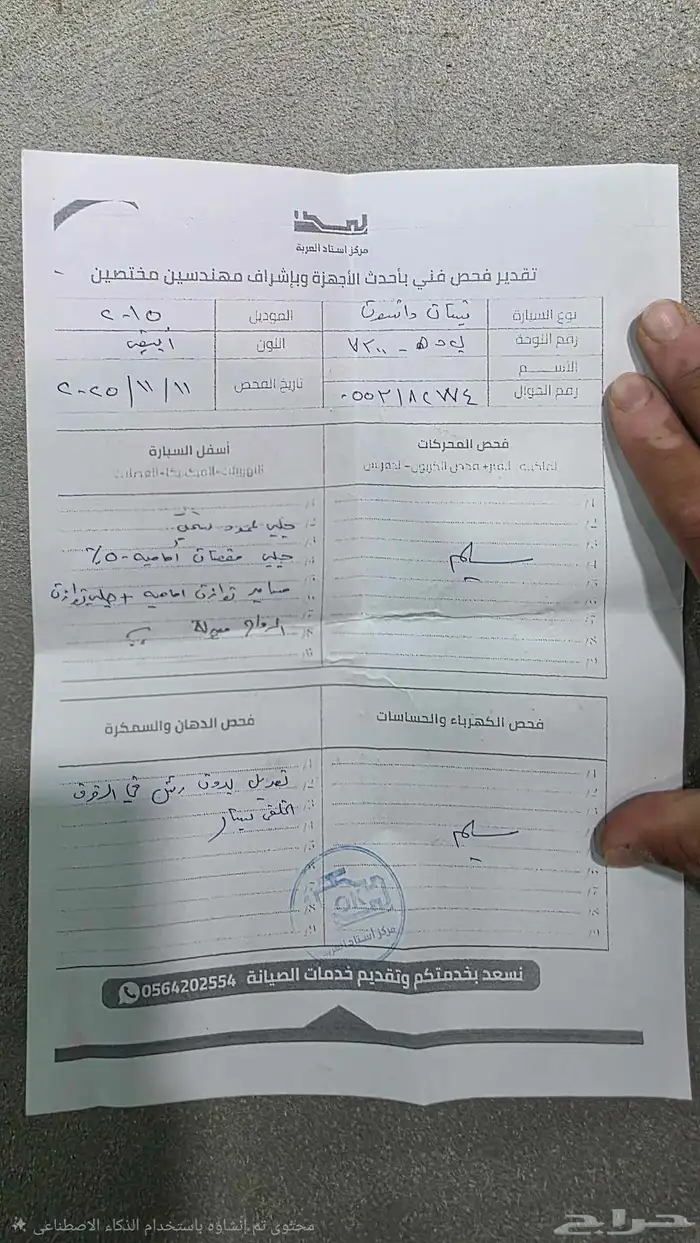 مركز استاذ العربة
تقدير فحص فني بأحدث الأجهزة وبإشراف مهندسين مختصين
نوع السيارة نيسان داتسون الموديل ٢٠١٥
رقم اللوحة ٧٢٠٠ اللون أبيض
الاســـم
رقم الجوال ٠٥٥٢١٨٢٧٧٤ تاريخ الفحص ٢٠٢٥/١١/١١
فحص المحركات
سليم
أسفل السيارة
جلب
جلب مقصات أماميه ٥٠٪
مسامير توازن اماميه + جلب توازن
فحص الكهرباء والحساسات
سليم
فحص الدهان والسمكرة
تعديل بدون رش في الرفرف
الخلفي يسار
مركز استاذ العربة
نسعد بخدمتكم وتقديم خدمات الصيانة 0564202554
محتوى تم إنشاؤه باستخدام الذكاء الاصطناعي
حراج